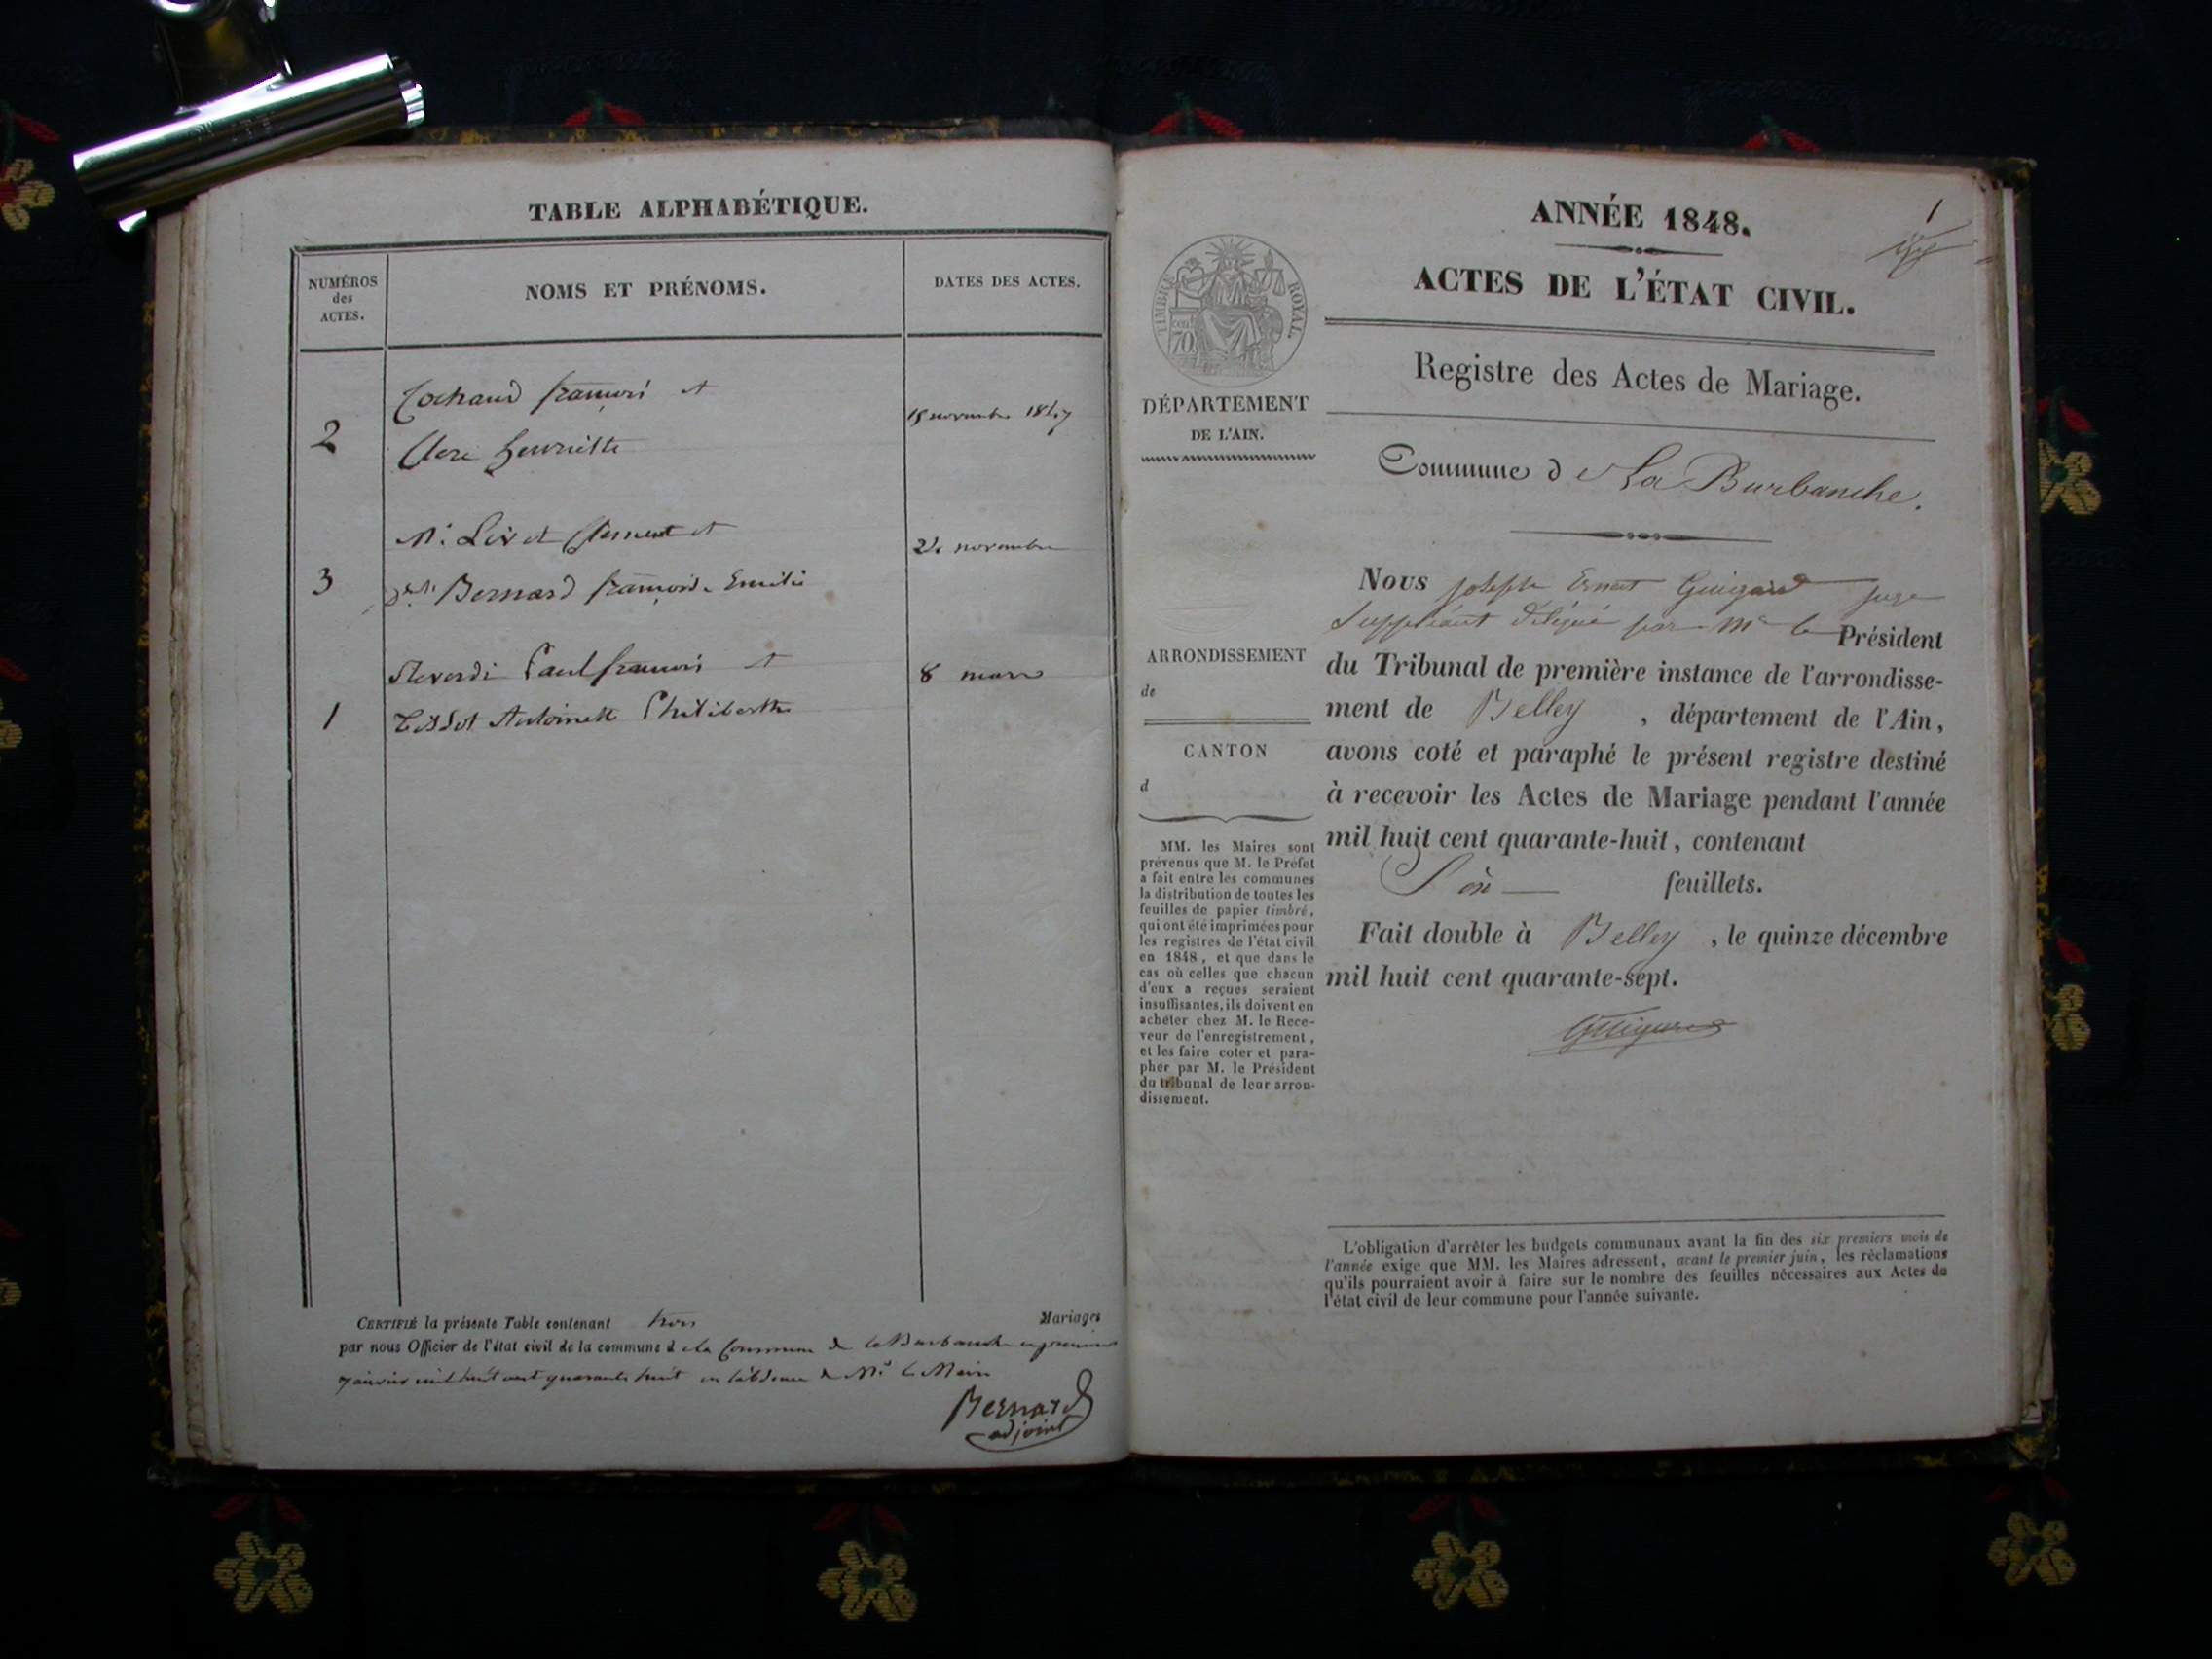 TABLE ALPHABÉTIQUE.
NUMÉROS
des
ACTES.
NOMS ET PRÉNOMS.
DATES DES ACTES.
Cochand françois et
2
15 novembre 1847
Clere henriette
Mr. Livet Clement et
24 novembre
3
Bernard françoise Emilie
Reverdi Paul françois et
8 mars
1
Tissot Antoinette Philiberthe
CERTIFIÉ la présente Table contenant trois Mariages
par nous Officier de l'état civil de la commune d la Commune de la Burbanche
janvier mil huit cent quarante huit en l'absence de Mr le Maire
Bernard
adjoint
1
ANNÉE 1848.
ACTES DE L'ÉTAT CIVIL.
Registre des Actes de Mariage.
Commune de La Burbanche.
TIMBRE ROYAL.
cent
70
DÉPARTEMENT
DE L'AIN.
ARRONDISSEMENT
de
CANTON
d
MM. les Maires sont
prévenus que M. le Préfet
a fait entre les communes
la distribution de toutes les
feuilles de papier timbré,
qui ont été imprimées pour
les registres de l'état civil
en 1848, et que dans le
cas où celles que chacun
d'eux a reçues seraient
insuffisantes, ils doivent en
acheter chez M. le Rece-
veur de l'enregistrement,
et les faire coter et para-
pher par M. le Président
du tribunal de leur arron-
dissement.
Nous joseph Ernest Guigard juge
Suppléant délégué par Mr le Président
du Tribunal de première instance de l'arrondisse-
ment de Belley, département de l'Ain,
avons coté et paraphé le présent registre destiné
à recevoir les Actes de Mariage pendant l'année
mil huit cent quarante-huit, contenant
Six feuillets.
Fait double à Belley, le quinze décembre
mil huit cent quarante-sept.
Guigard
L'obligation d'arrêter les budgets communaux avant la fin des six premiers mois de
l'année exige que MM. les Maires adressent, avant le premier juin, les réclamations
qu'ils pourraient avoir à faire sur le nombre des feuilles nécessaires aux Actes de
l'état civil de leur commune pour l'année suivante.